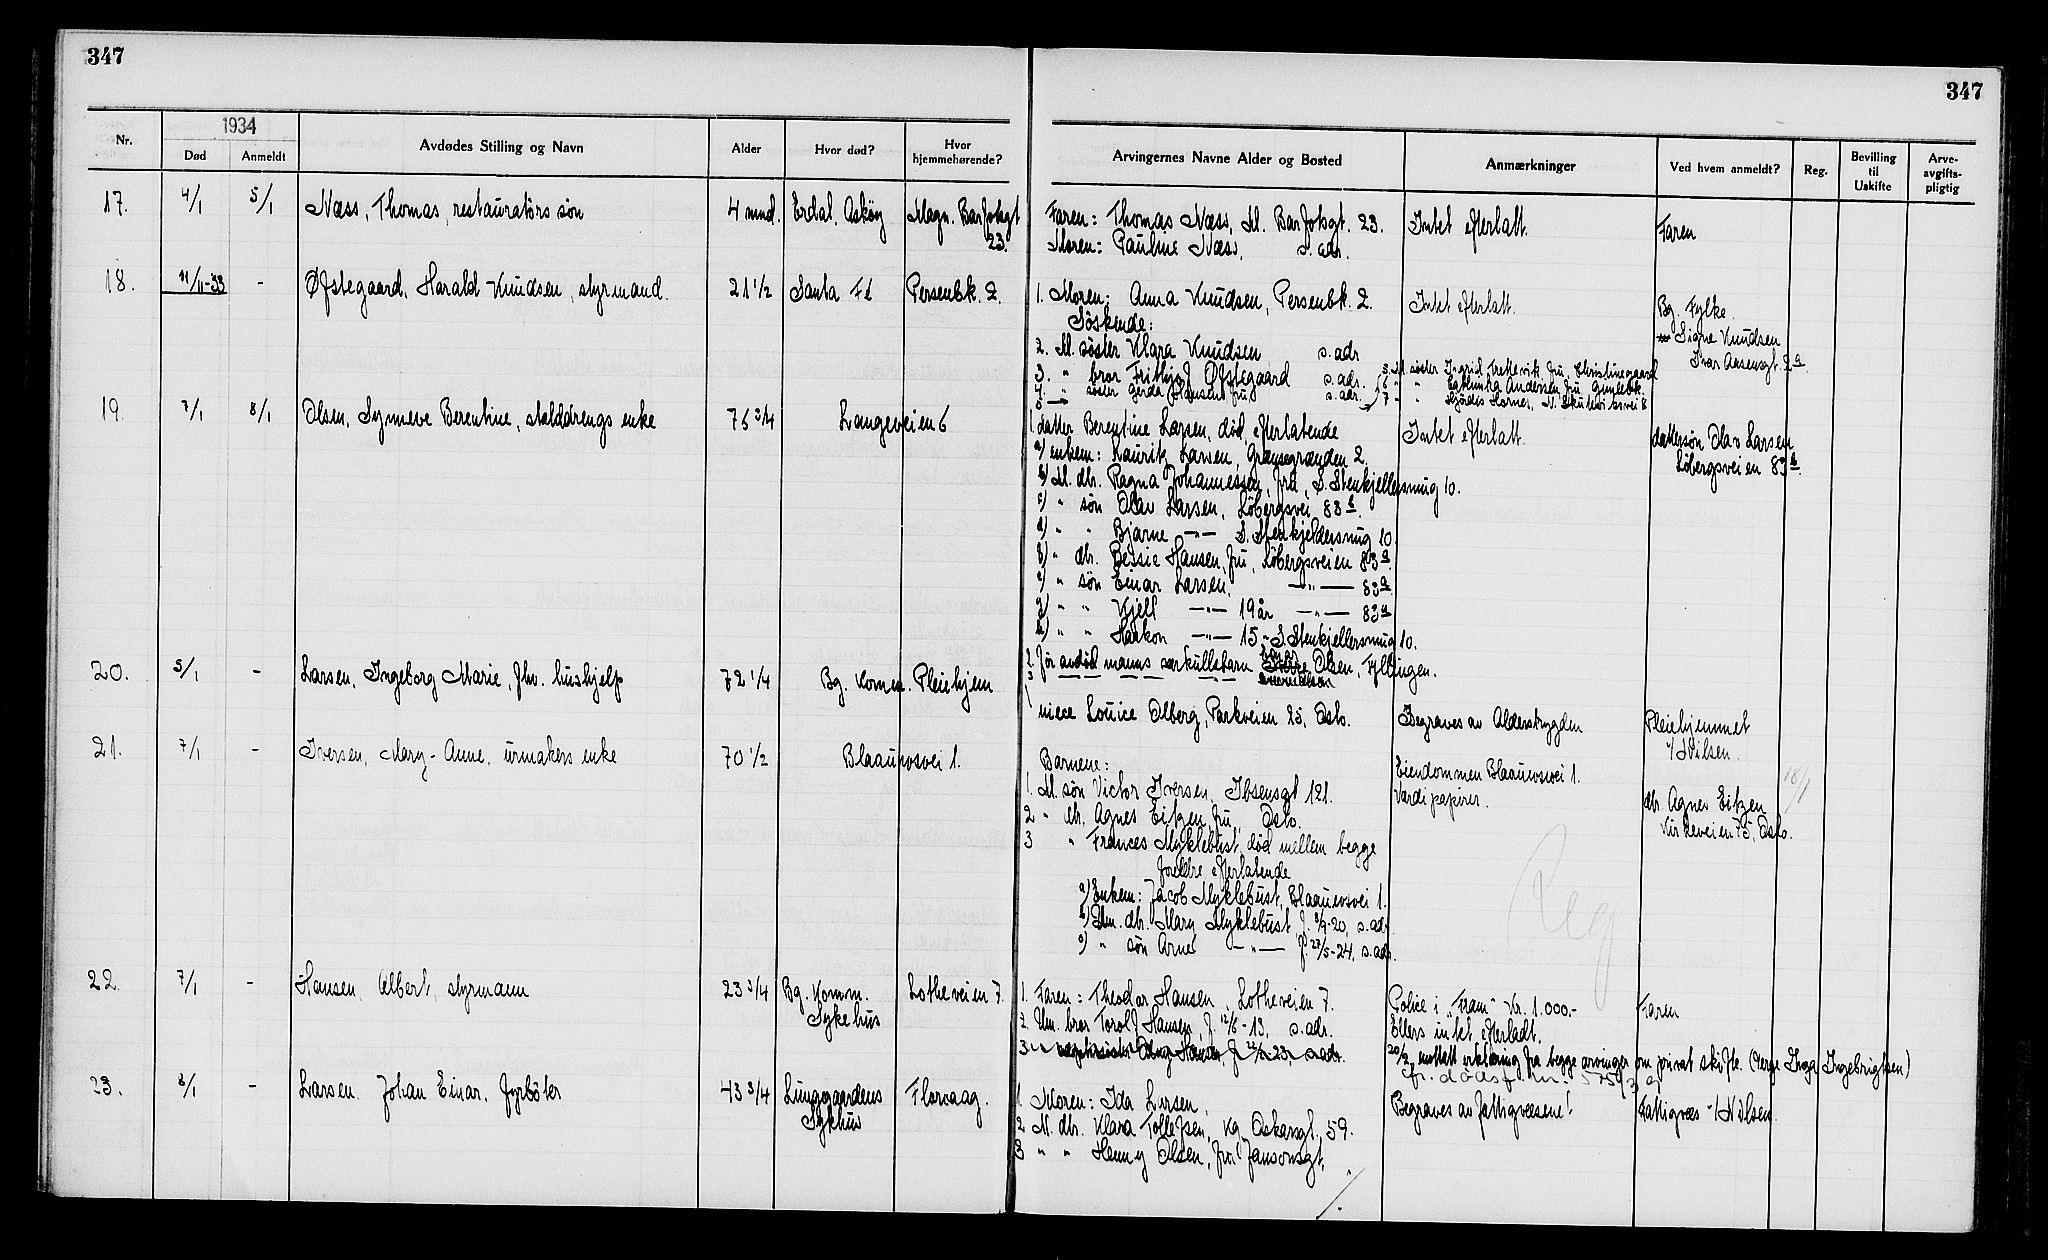 347
347
1934
Nr. Død Anmeldt Avdødes Stilling og Navn Alder Hvor død? Hvor hjemmehørende? Arvingernes Navne Alder og Bosted Anmærkninger Ved hvem anmeldt? Reg. Bevilling til Uskifte Arve-avgifts-pligtig
17. 4/1 5/1 Næss, Thomas, restauratørs søn 4 mnd. Erdal, Askøy Magn. Barfotsgt
23.
Faren: Thomas Næss, M. Barfotsgt. 23. Intet efterlatt. Faren
Moren: Pauline Næss, s. adr.
18. 11/11-33 - Øfstegaard, Harald Knudsen, styrmand. 21 1/2 Santa Fé Persenbk. 2.
1. Moren: Anna Knudsen, Persenbk. 2. Intet efterlatt. Bg. Fylke.
Søskende: Signe Knudsen
2. M. søster Klara Knudsen s. adr Ivar Aasensgt. 2a
3. " bror Frithjof Øfstegaard s. adr. 5 M. søster Ingrid Trellevik fru, Christinegaard
4. " søster Gerda Hansen fru s. adr. 6 " " Andersen fru
7 " " Hjørdis
19. 7/1 8/1 Olsen, Synneve Berentine, stalddrengs enke 75 3/4 Langeveien 6
1. datter Berentine Larsen, død, efterlatende Intet efterlatt. dattersøn Olav Larsen
a) enkem: Lauritz Larsen, Grænsegrænden 2. Løbergsveien 83b.
b) M. dtr. Ragna Johannessen, fru, S. Stenkjellersmug 10.
c) " søn Olav Larsen, Løbergsvei 83b.
d) " " Bjarne -"- S. Stenkjeldersmug 10.
" dtr. Bessie Hansen, fru, Løbergsveien 83a.
" søn Einar Larsen, -"- 83a
" " Kjell -"- 19 år -"- 83a
" " Haakon -"- 15 - S Stenkjellersmug 10.
2. For avdød manns særkullsbarn Olsen, Fyllingen.
20. 5/1 - Larsen, Ingeborg Marie, fhv. hushjelp 72 1/4 Bg. Komm. Pleiehjem
niece Louice Olberg, Parkveien 25, Oslo. Begraves av Alderstrygden Pleiehjemmet
v/ Nilsen.
21. 7/1 - Iversen, Mary-Anne, urmakers enke 70 1/2 Blaauwsvei 1.
Barnene: Eiendommen Blaauwsvei 1. 18/1
1. M. søn Victor Iversen, Ibsensgt 121. Værdipapirer. dtr. Agnes Eitzen
2 " dtr. Agnes Eitzen fru, Oslo. Kirkeveien 75, Oslo.
3 " Frances Myklebust, død mellem begge
foreldre efterlatende
a) Enkem: Jacob Myklebust, Blaauwsvei 1.
b) Um. dtr. Mary Myklebust f. 8/9-20, s. adr
c) " søn Arne -"- f. 27/5-24, s. adr.
Reg
22. 7/1 - Hansen, Albert, styrmann 23 3/4 Bg. Komm.
Sykehus
Lotheveien 7.
1. Faren: Theodor Hansen, Lotheveien 7. Police i "Fram" Kr. 1.000.- Faren
2. Um. bror Torolf Hansen, f. 12/6-13, s. adr. Ellers intet efterladt.
20/2 mottatt erklæring fra begge arvinger om privat skifte. (Verge Inga Ingebrigtsen)
23. 8/1 - Larsen, Johan Einar, fyrbøter 43 3/4 Lungegaardens
Sykhus
Florvaag.
1. Moren: Ida Larsen, Begraves av fattigvæsenet! Fattigvæs v/ Nilsen.
2 M. dtr. Klara Tollefsen, Kg. Oskarsgt. 59.
3 " " Henny Olsen, fru Jansonsgt.